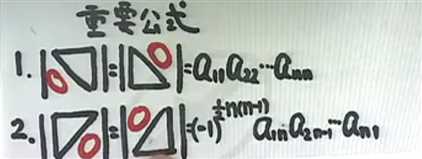 重要公式
1. |0◺| = |◺0| = a₁₁a₂₂⋯aₙₙ
2. |◸0| = |0◿| = (-1)^{½n(n-1)} a₁ₙa₂ₙ₋₁⋯aₙ₁